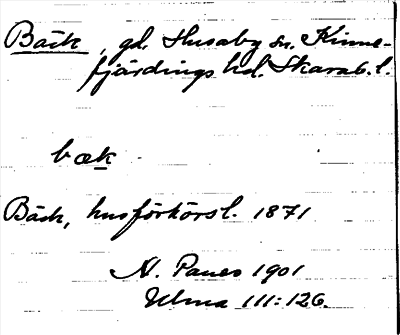 Bäck, gd. Husaby sn. Kinne-
fjärdings hd. Skarab. l.
bæk
Bäck, husförhörsl. 1871
N. Panes 1901
Ulma 111:126.